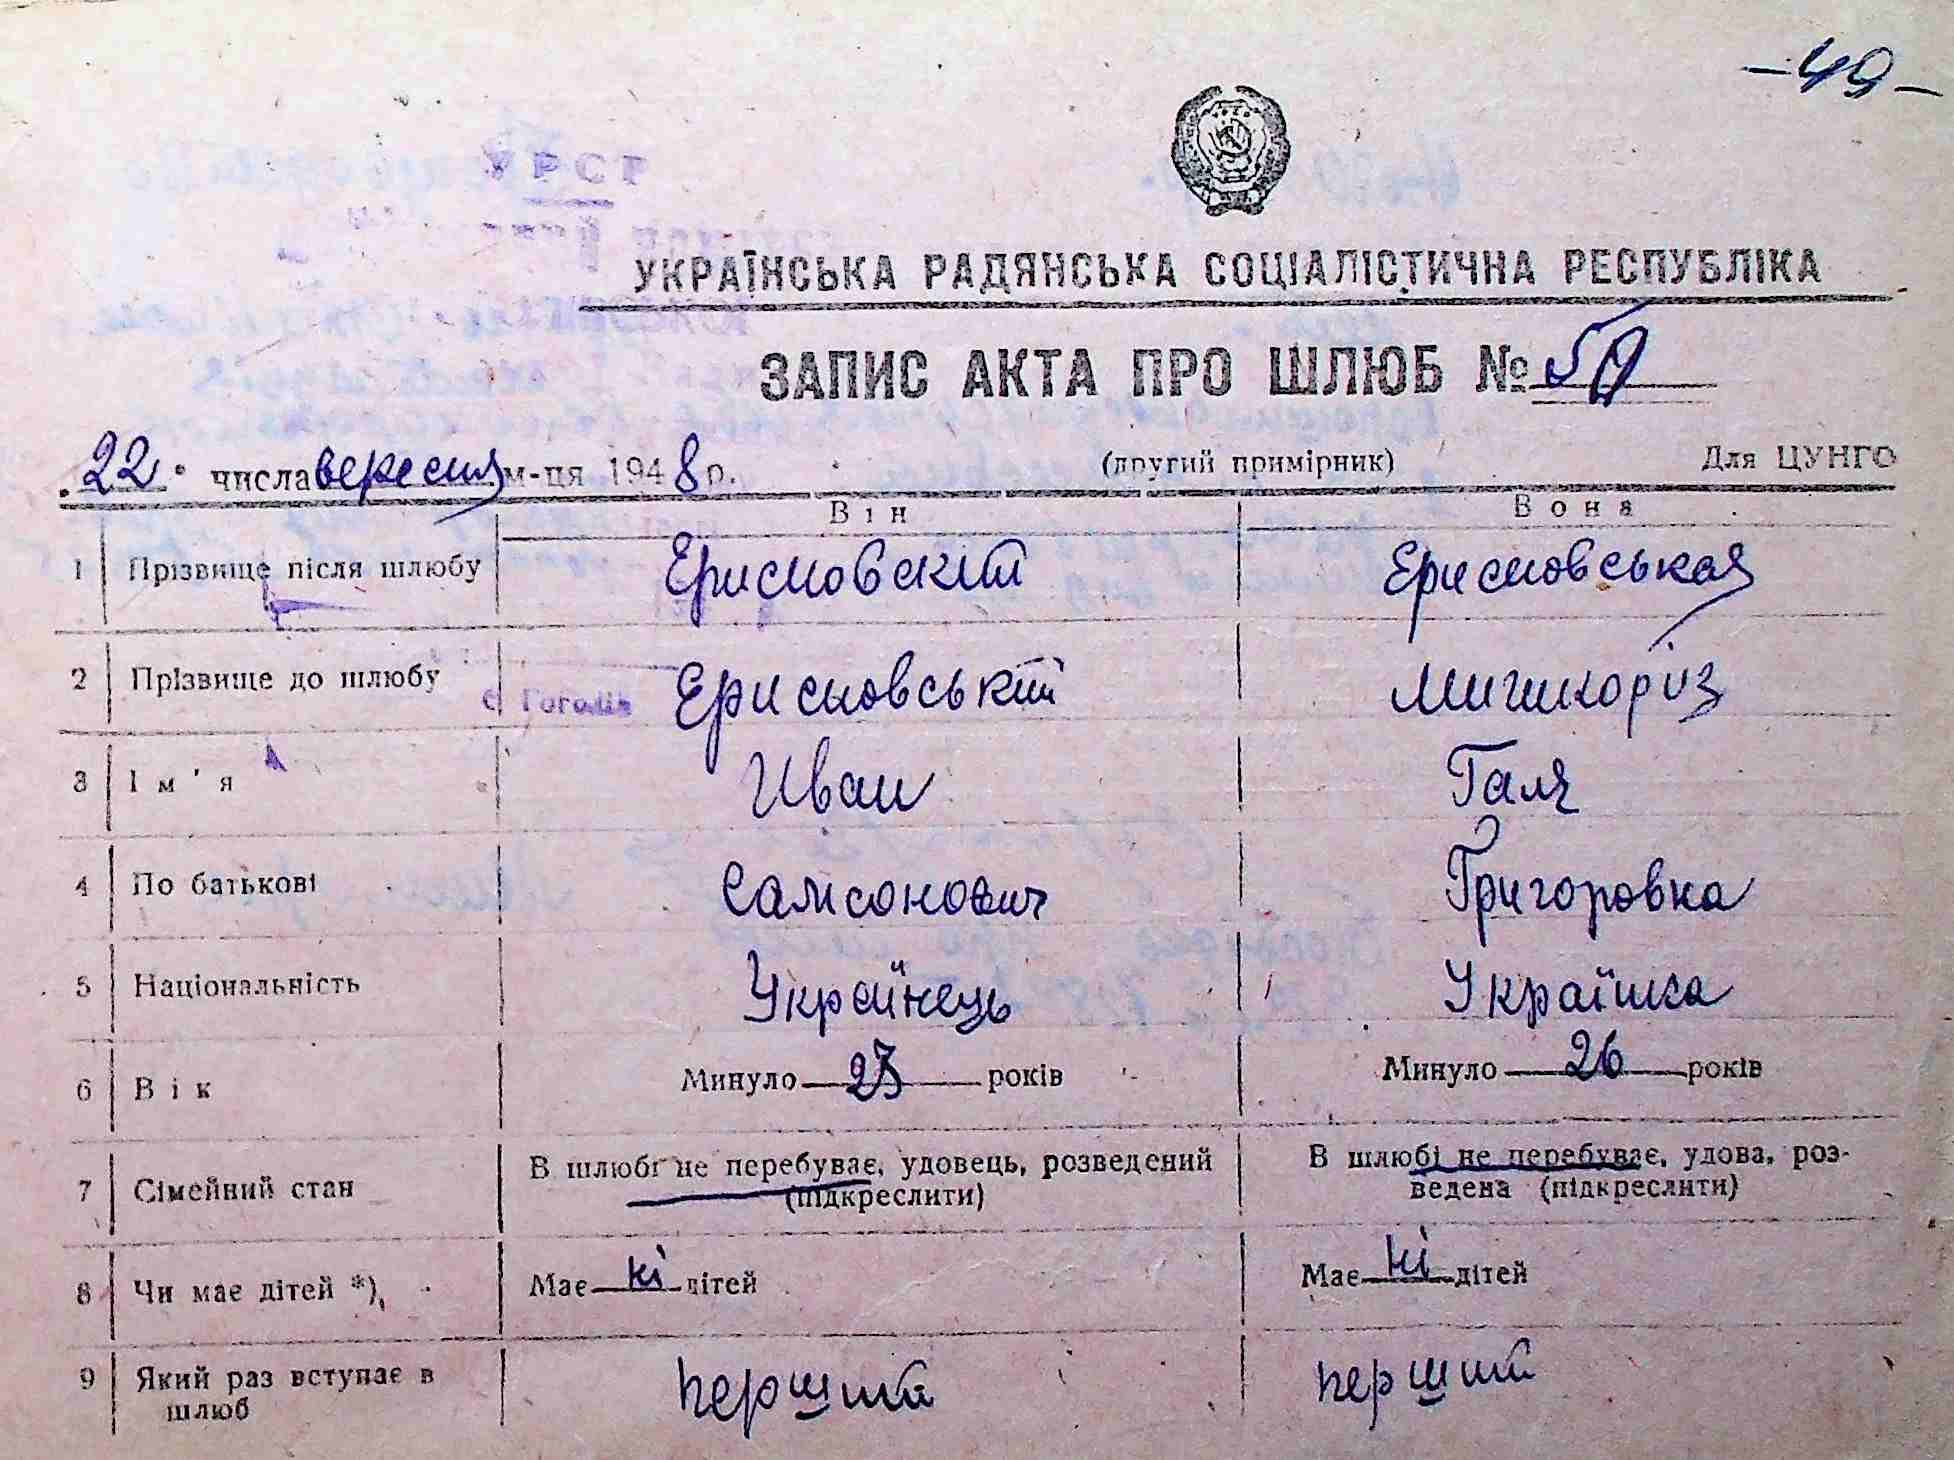 -49-
УРСР
УКРАЇНСЬКА РАДЯНСЬКА СОЦІАЛІСТИЧНА РЕСПУБЛІКА
ЗАПИС АКТА ПРО ШЛЮБ № 50
22 числа вересня м-ця 1948 р. (другий примірник) Для ЦУНГО
Він Вона
1 Прізвище після шлюбу Ерисновскій Ерисновськая
2 Прізвище до шлюбу Ерисновській Мишкоріз
3 Ім'я Иван Галя
4 По батькові Самсонович Григоровна
5 Національність Українець Українка
6 Вік Минуло 23 років Минуло 26 років
7 Сімейний стан В шлюбі не перебуває, удовець, розведений (підкреслити) В шлюбі не перебуває, удова, роз-
ведена (підкреслити)
8 Чи має дітей *) Має ні дітей Має ні дітей
9 Який раз вступає в шлюб перший перший